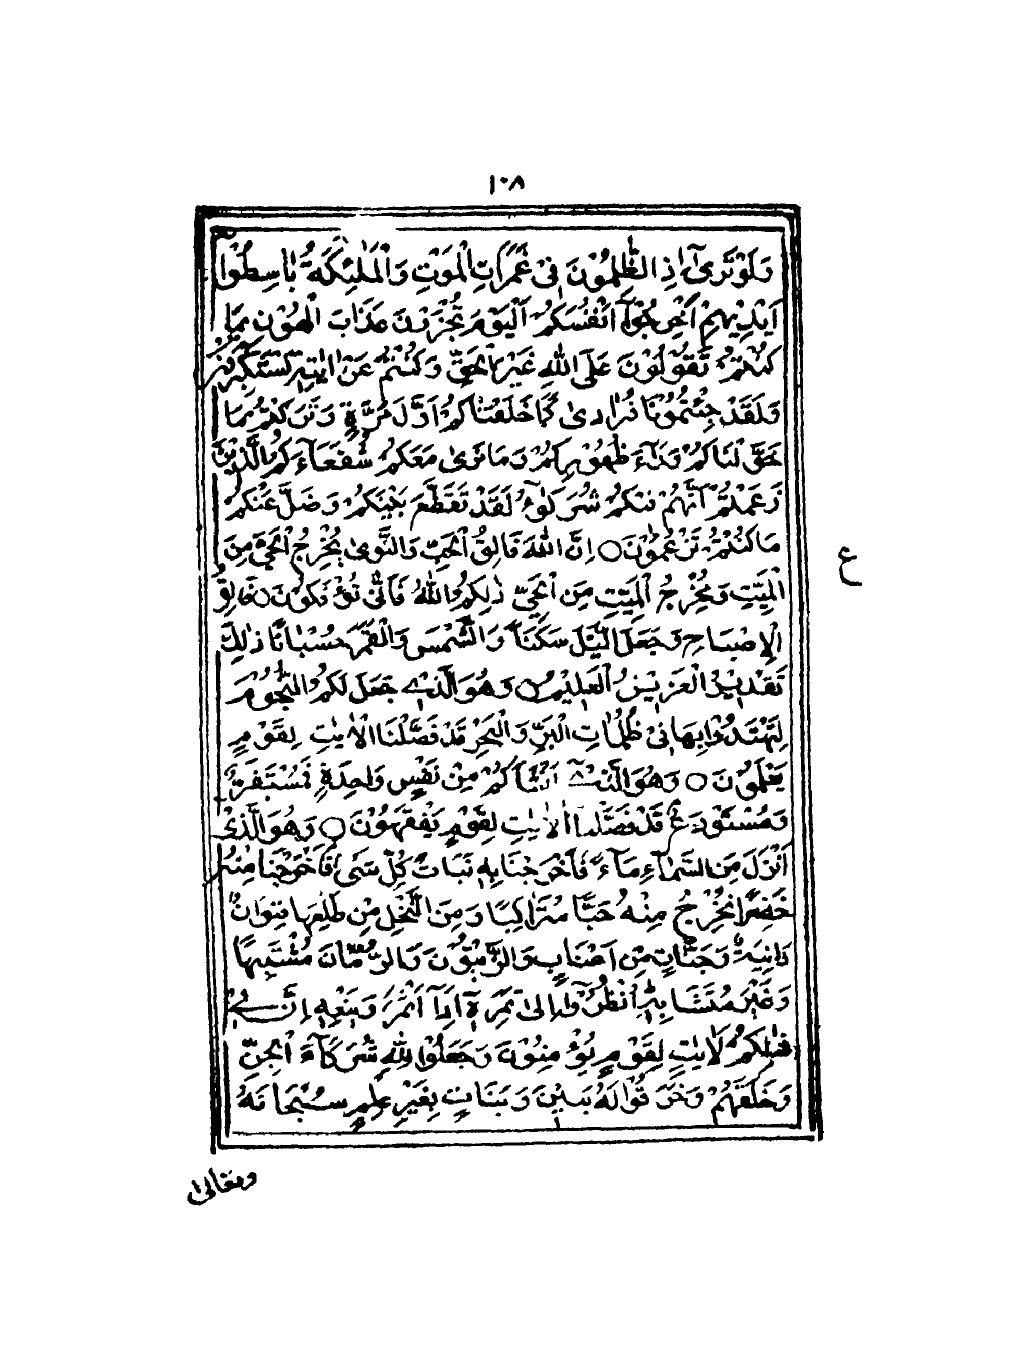 ١٠٨
وَلَوْ تَرَىٰٓ اِذِ الظّٰلِمُوْنَ فِیْ غَمَرَاتِ الْمَوْتِ وَالْمَلٰٓئِكَةُ بَاسِطُوْٓا
اَیْدِیْهِمْ اَخْرِجُوْٓا اَنْفُسَكُمْ اَلْیَوْمَ تُجْزَوْنَ عَذَابَ الْهُوْنِ بِمَا
كُنْتُمْ تَقُوْلُوْنَ عَلَی اللّٰهِ غَیْرَ الْحَقِّ وَكُنْتُمْ عَنْ اٰیٰتِهٖ تَسْتَكْبِرُوْنَ
وَلَقَدْ جِئْتُمُوْنَا فُرَادٰی كَمَا خَلَقْنَاكُمْ اَوَّلَ مَرَّةٍ وَتَرَكْتُمْ مَّا
خَوَّلْنَاكُمْ وَرَآءَ ظُهُوْرِكُمْ وَمَا نَرٰی مَعَكُمْ شُفَعَآءَكُمُ الَّذِیْنَ
زَعَمْتُمْ اَنَّهُمْ فِیْكُمْ شُرَكٰٓؤُا لَقَدْ تَقَطَّعَ بَیْنَكُمْ وَضَلَّ عَنْكُمْ
مَا كُنْتُمْ تَزْعُمُوْنَ ○ اِنَّ اللّٰهَ فَالِقُ الْحَبِّ وَالنَّوٰی یُخْرِجُ الْحَیَّ مِنَ
الْمَیِّتِ وَمُخْرِجُ الْمَیِّتِ مِنَ الْحَیِّ ذٰلِكُمُ اللّٰهُ فَاَنّٰی تُؤْفَكُوْنَ ○ فَالِقُ
الْاِصْبَاحِ وَجَعَلَ الَّیْلَ سَكَنًا وَّالشَّمْسَ وَالْقَمَرَ حُسْبَانًا ذٰلِكَ
تَقْدِیْرُ الْعَزِیْزِ الْعَلِیْمِ ○ وَهُوَ الَّذِیْ جَعَلَ لَكُمُ النُّجُوْمَ
لِتَهْتَدُوْا بِهَا فِیْ ظُلُمَاتِ الْبَرِّ وَالْبَحْرِ قَدْ فَصَّلْنَا الْاٰیٰتِ لِقَوْمٍ
یَّعْلَمُوْنَ ○ وَهُوَ الَّذِیْٓ اَنْشَاَكُمْ مِّنْ نَّفْسٍ وَّاحِدَةٍ فَمُسْتَقَرٌّ
وَّمُسْتَوْدَعٌ قَدْ فَصَّلْنَا الْاٰیٰتِ لِقَوْمٍ یَّفْقَهُوْنَ ○ وَهُوَ الَّذِیْٓ
اَنْزَلَ مِنَ السَّمَآءِ مَآءً فَاَخْرَجْنَا بِهٖ نَبَاتَ كُلِّ شَیْءٍ فَاَخْرَجْنَا مِنْهُ
خَضِرًا نُّخْرِجُ مِنْهُ حَبًّا مُّتَرَاكِبًا وَمِنَ النَّخْلِ مِنْ طَلْعِهَا قِنْوَانٌ
دَانِیَةٌ وَّجَنّٰتٍ مِّنْ اَعْنَابٍ وَّالزَّیْتُوْنَ وَالرُّمَّانَ مُشْتَبِهًا
وَّغَیْرَ مُتَشَابِهٍ اُنْظُرُوْٓا اِلٰی ثَمَرِهٖٓ اِذَآ اَثْمَرَ وَیَنْعِهٖ اِنَّ فِیْ
ذٰلِكُمْ لَاٰیٰتٍ لِّقَوْمٍ یُّؤْمِنُوْنَ وَجَعَلُوْا لِلّٰهِ شُرَكَآءَ الْجِنَّ
وَخَلَقَهُمْ وَخَرَقُوْا لَهٗ بَنِیْنَ وَبَنَاتٍ بِغَیْرِ عِلْمٍ سُبْحَانَهٗ
ع
وتعالٰی